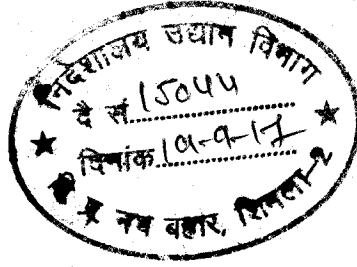 निदेशालय उद्यान विभाग
दै सं 15044
दिनांक 19-9-17
नव बहार, शिमला-2